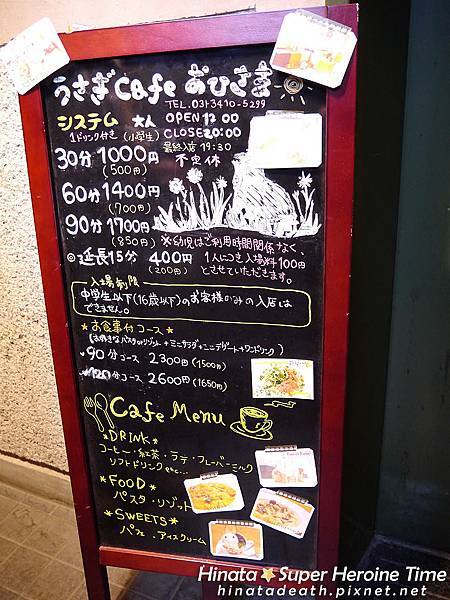 うさぎCafe おひさま
TEL.03-3410-5299
システム 大人
1ドリンク付き (小学生)
OPEN 12:00
CLOSE 20:00
最終入店 19:30
不定休
30分 1000円
(500円)
60分 1400円
(700円)
90分 1700円
(850円)
延長15分 400円
(200円)
※幼児はご利用時間関係なく、
1人につき入場料100円
とさせていただきます。
入場制限
中学生以下(16歳以下)のお客様のみの入店は
できません。
*お食事付コース*
(お好きなパスタorリゾット+ミニサラダ+ミニデザート+ワンドリンク)
90分コース 2300円(1500円)
120分コース 2600円(1650円)
Cafe Menu
*DRINK*
コーヒー・紅茶・ラテ・フレーバーミルク
ソフトドリンク etc...
*FOOD*
パスタ・リゾット
*SWEETS*
パフェ・アイスクリーム
Hinata★Super Heroine Time
hinatadeath.pixnet.net